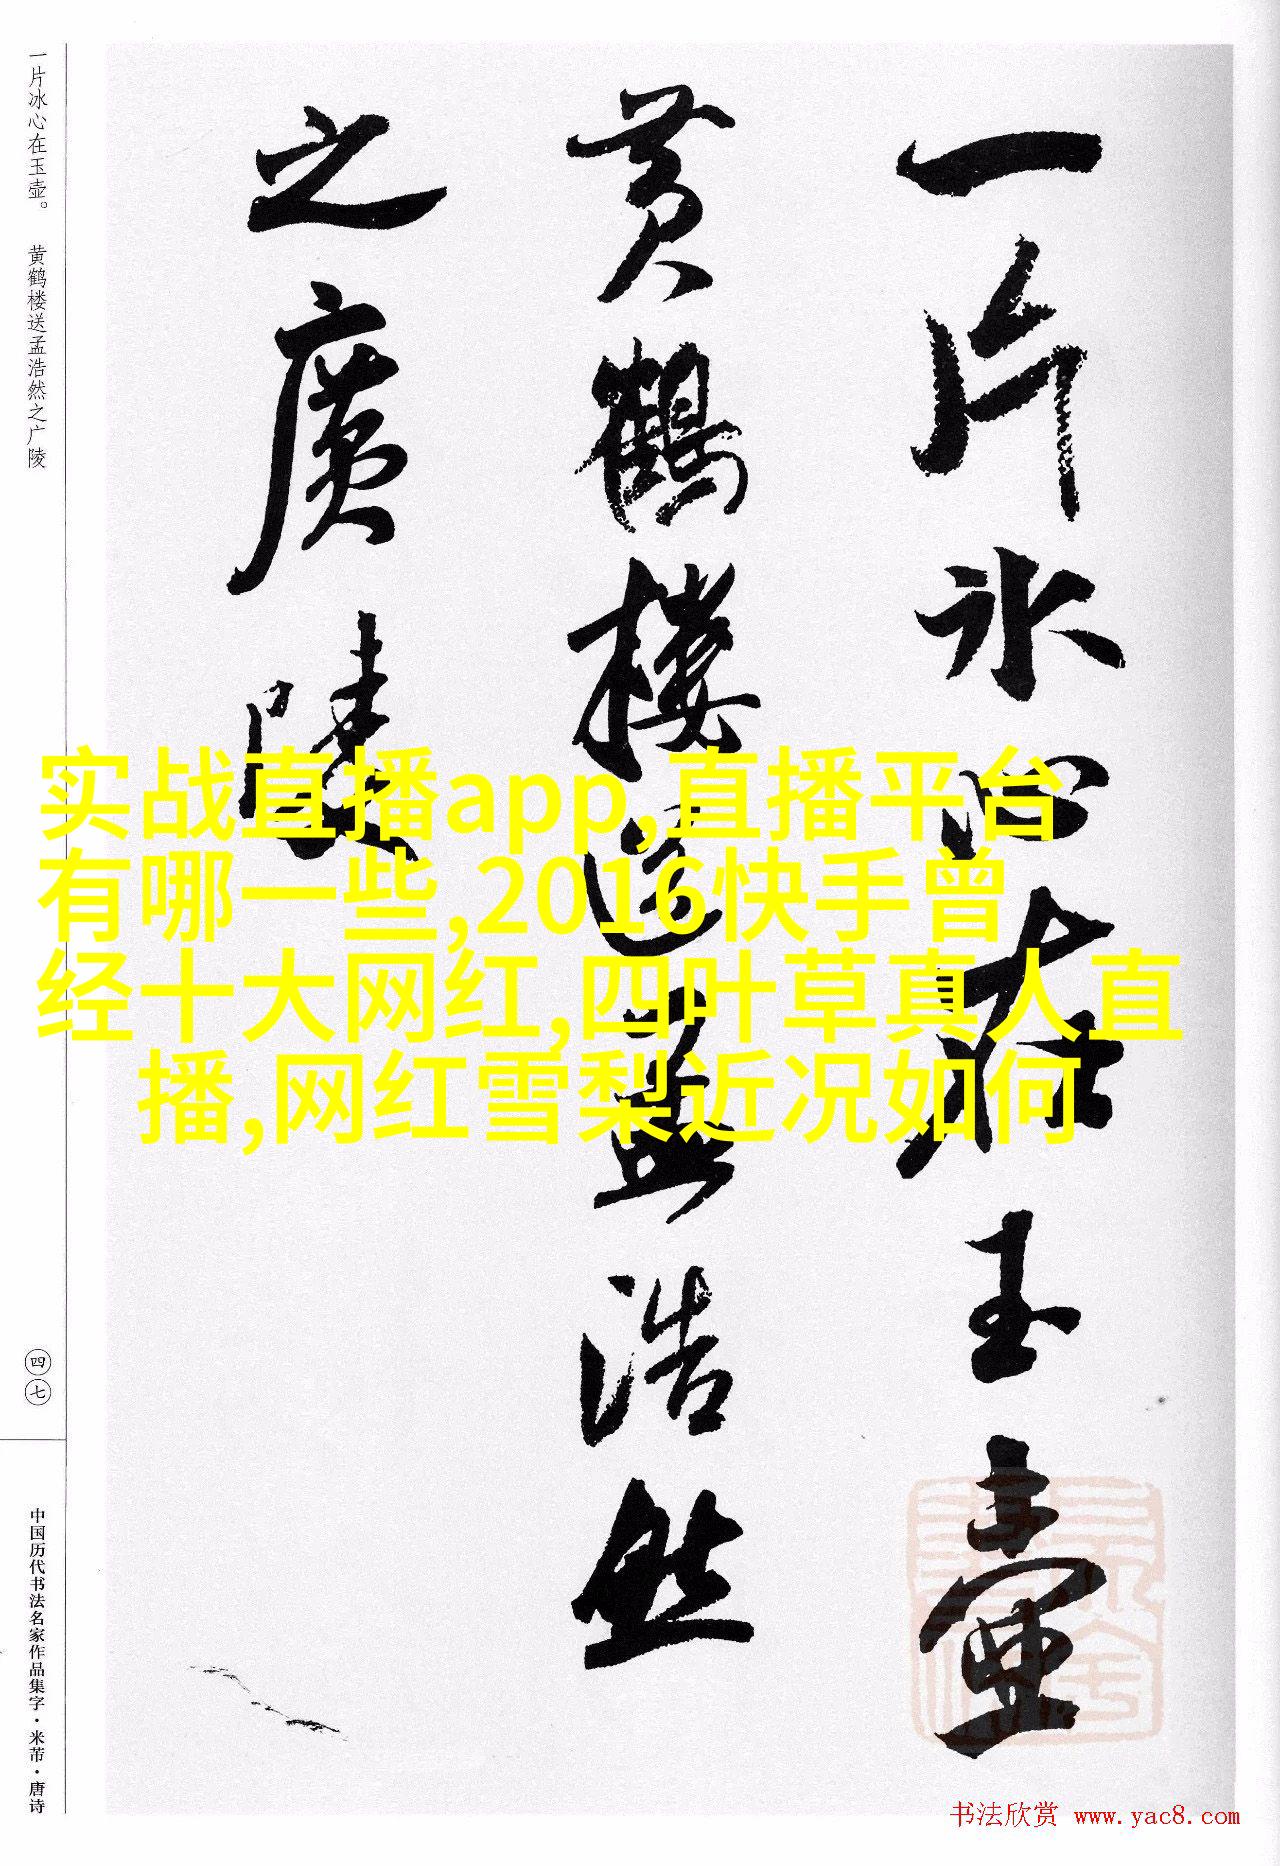 一片冰心在玉壶
黄鹤楼送孟浩然
之广陵
一片冰心在玉壶。 黄鹤楼送孟浩然之广陵
四七
中国历代书法名家作品集字·米芾·唐诗
实战直播app,直播平台
有哪一些,2016快手曾
经十大网红,四叶草真人直
播,网红雪梨近况如何
书法欣赏 www.yac8.com